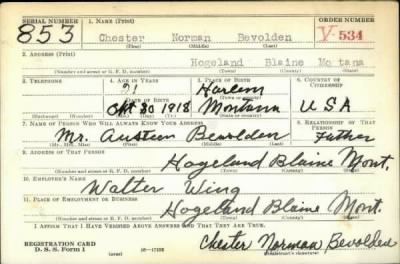 SERIAL NUMBER 1. NAME (Print) ORDER NUMBER
853 Chester Norman Bevolden V-534
(First) (Middle) (Last)
2. ADDRESS (Print)
Hogeland Blaine Montana
(Number and street or R. F. D. number) (Town) (County) (State)
3. TELEPHONE 4. AGE IN YEARS 5. PLACE OF BIRTH 6. COUNTRY OF CITIZENSHIP
21 Harlem
DATE OF BIRTH (Town or county)
Oct 30 1918 Montana U S A
(Exchange) (Number) (Mo.) (Day) (Yr.) (State or country)
7. NAME OF PERSON WHO WILL ALWAYS KNOW YOUR ADDRESS 8. RELATIONSHIP OF THAT PERSON
Mr. Austin Bevolden Father
(Mr., Mrs., Miss) (First) (Middle) (Last)
9. ADDRESS OF THAT PERSON
Hogeland Blaine Mont.
(Number and street or R. F. D. number) (Town) (County) (State)
10. EMPLOYER'S NAME
Walter Wing
11. PLACE OF EMPLOYMENT OR BUSINESS
Hogeland Blaine Mont.
(Number and street or R. F. D. number) (Town) (County) (State)
I AFFIRM THAT I HAVE VERIFIED ABOVE ANSWERS AND THAT THEY ARE TRUE.
REGISTRATION CARD
D. S. S. Form 1 Chester Norman Bevolden
(over) (Registrant's signature)